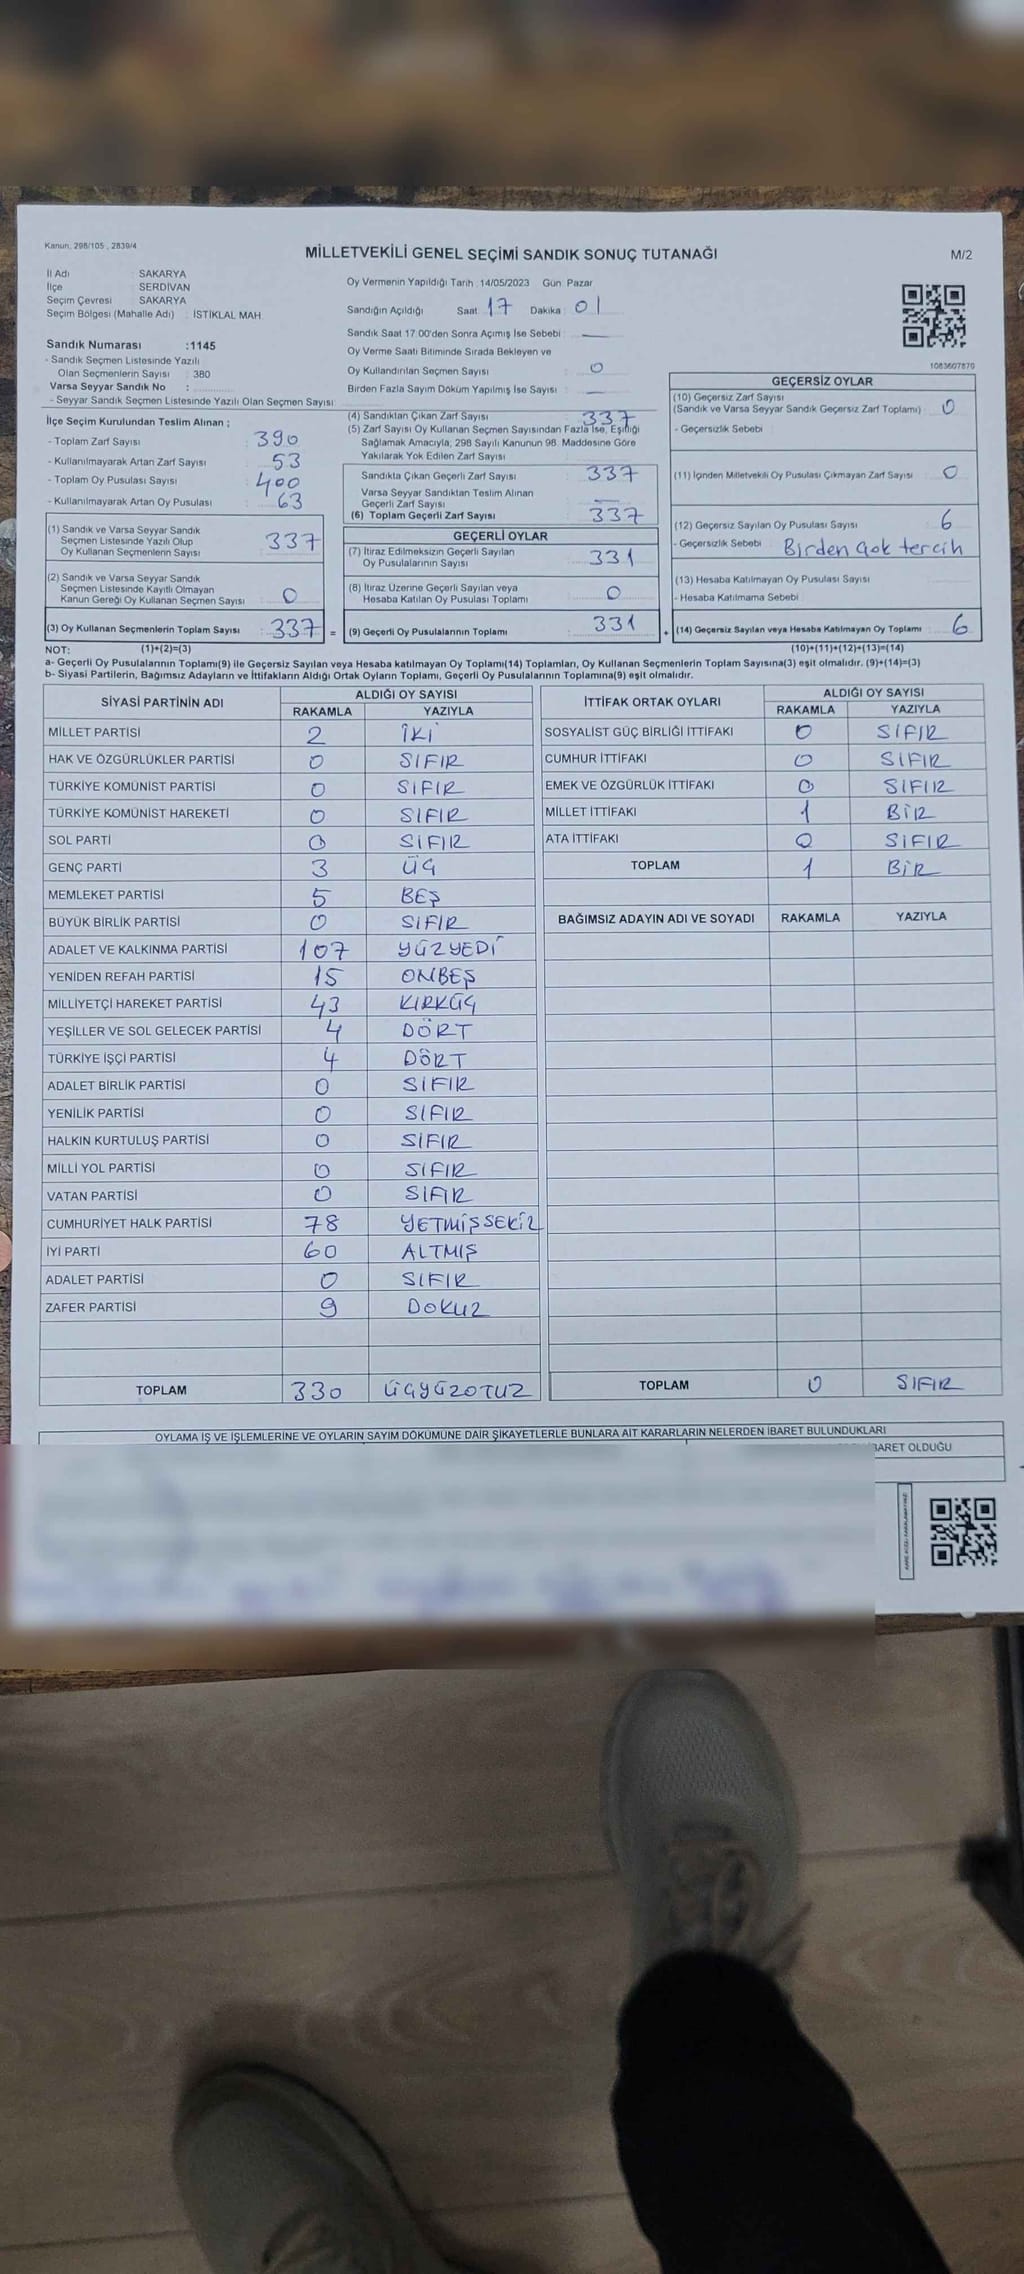 Kanun, 298/105 , 2839/4
MİLLETVEKİLİ GENEL SEÇİMİ SANDIK SONUÇ TUTANAĞI
M/2
İl Adı : SAKARYA
İlçe : SERDİVAN
Seçim Çevresi : SAKARYA
Seçim Bölgesi (Mahalle Adı) : İSTİKLAL MAH.
Sandık Numarası :1145
- Sandık Seçmen Listesinde Yazılı
Olan Seçmenlerin Sayısı : 380
Varsa Seyyar Sandık No :
- Seyyar Sandık Seçmen Listesinde Yazılı Olan Seçmen Sayısı:
Oy Vermenin Yapıldığı Tarih : 14/05/2023 Gün: Pazar
Sandığın Açıldığı Saat: 17 Dakika: 01
Sandık Saat 17:00'den Sonra Açımış İse Sebebi : —
Oy Verme Saati Bitiminde Sırada Bekleyen ve
Oy Kullandırılan Seçmen Sayısı : 0
Birden Fazla Sayım Döküm Yapılmış İse Sayısı : —
1083607870
İlçe Seçim Kurulundan Teslim Alınan ;
- Toplam Zarf Sayısı : 390
- Kullanılmayarak Artan Zarf Sayısı : 53
- Toplam Oy Pusulası Sayısı : 400
- Kullanılmayarak Artan Oy Pusulası : 63
(1) Sandık ve Varsa Seyyar Sandık
Seçmen Listesinde Yazılı Olup
Oy Kullanan Seçmenlerin Sayısı : 337
(2) Sandık ve Varsa Seyyar Sandık
Seçmen Listesinde Kayıtlı Olmayan
Kanun Gereği Oy Kullanan Seçmen Sayısı : 0
(3) Oy Kullanan Seçmenlerin Toplam Sayısı : 337 =
(4) Sandıktan Çıkan Zarf Sayısı : 337
(5) Zarf Sayısı Oy Kullanan Seçmen Sayısından Fazla İse, Eşitliği
Sağlamak Amacıyla, 298 Sayılı Kanunun 98. Maddesine Göre
Yakılarak Yok Edilen Zarf Sayısı :
Sandıkta Çıkan Geçerli Zarf Sayısı : 337
Varsa Seyyar Sandıktan Teslim Alınan
Geçerli Zarf Sayısı : —
(6) Toplam Geçerli Zarf Sayısı : 337
GEÇERLİ OYLAR
(7) İtiraz Edilmeksizin Geçerli Sayılan
Oy Pusulalarının Sayısı : 331
(8) İtiraz Üzerine Geçerli Sayılan veya
Hesaba Katılan Oy Pusulası Toplamı : 0
(9) Geçerli Oy Pusulalarının Toplamı : 331 +
GEÇERSİZ OYLAR
(10) Geçersiz Zarf Sayısı
(Sandık ve Varsa Seyyar Sandık Geçersiz Zarf Toplamı) : 0
- Geçersizlik Sebebi :
(11) İçinden Milletvekili Oy Pusulası Çıkmayan Zarf Sayısı : 0
(12) Geçersiz Sayılan Oy Pusulası Sayısı : 6
- Geçersizlik Sebebi : Birden çok tercih
(13) Hesaba Katılmayan Oy Pusulası Sayısı :
- Hesaba Katılmama Sebebi :
(14) Geçersiz Sayılan veya Hesaba Katılmayan Oy Toplamı : 6
NOT: (1)+(2)=(3) (10)+(11)+(12)+(13)=(14)
a- Geçerli Oy Pusulalarının Toplamı(9) ile Geçersiz Sayılan veya Hesaba katılmayan Oy Toplamı(14) Toplamları, Oy Kullanan Seçmenlerin Toplam Sayısına(3) eşit olmalıdır. (9)+(14)=(3)
b- Siyasi Partilerin, Bağımsız Adayların ve İttifakların Aldığı Ortak Oyların Toplamı, Geçerli Oy Pusulalarının Toplamına(9) eşit olmalıdır.
SİYASİ PARTİNİN ADI ALDIĞI OY SAYISI
RAKAMLA YAZIYLA
MİLLET PARTİSİ 2 İKİ
HAK VE ÖZGÜRLÜKLER PARTİSİ 0 SIFIR
TÜRKİYE KOMÜNİST PARTİSİ 0 SIFIR
TÜRKİYE KOMÜNİST HAREKETİ 0 SIFIR
SOL PARTİ 0 SIFIR
GENÇ PARTİ 3 ÜÇ
MEMLEKET PARTİSİ 5 BEŞ
BÜYÜK BİRLİK PARTİSİ 0 SIFIR
ADALET VE KALKINMA PARTİSİ 107 YÜZYEDİ
YENİDEN REFAH PARTİSİ 15 ONBEŞ
MİLLİYETÇİ HAREKET PARTİSİ 43 KIRKÜÇ
YEŞİLLER VE SOL GELECEK PARTİSİ 4 DÖRT
TÜRKİYE İŞÇİ PARTİSİ 4 DÖRT
ADALET BİRLİK PARTİSİ 0 SIFIR
YENİLİK PARTİSİ 0 SIFIR
HALKIN KURTULUŞ PARTİSİ 0 SIFIR
MİLLİ YOL PARTİSİ 0 SIFIR
VATAN PARTİSİ 0 SIFIR
CUMHURİYET HALK PARTİSİ 78 YETMİŞSEKİZ
İYİ PARTİ 60 ALTMIŞ
ADALET PARTİSİ 0 SIFIR
ZAFER PARTİSİ 9 DOKUZ
TOPLAM 330 ÜÇYÜZOTUZ
İTTİFAK ORTAK OYLARI ALDIĞI OY SAYISI
RAKAMLA YAZIYLA
SOSYALİST GÜÇ BİRLİĞİ İTTİFAKI 0 SIFIR
CUMHUR İTTİFAKI 0 SIFIR
EMEK VE ÖZGÜRLÜK İTTİFAKI 0 SIFIR
MİLLET İTTİFAKI 1 BİR
ATA İTTİFAKI 0 SIFIR
TOPLAM 1 BİR
BAĞIMSIZ ADAYIN ADI VE SOYADI RAKAMLA YAZIYLA
TOPLAM 0 SIFIR
OYLAMA İŞ VE İŞLEMLERİNE VE OYLARIN SAYIM DÖKÜMÜNE DAİR ŞİKAYETLERLE BUNLARA AİT KARARLARIN NELERDEN İBARET BULUNDUKLARI
BARET OLDUĞU